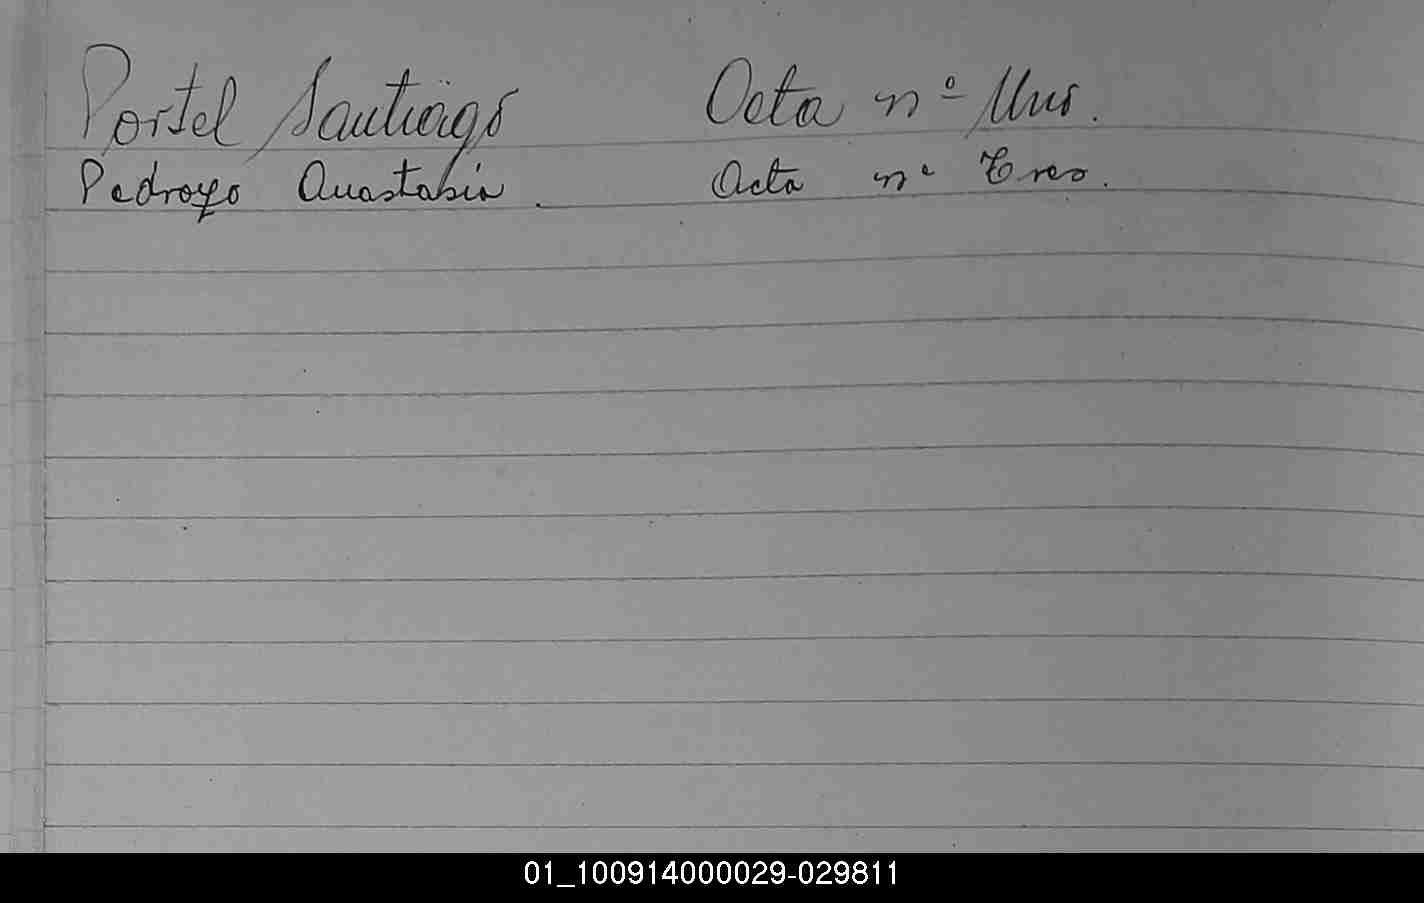 Portel Santiago Acta nº Uno.
Pedrozo Anastasia. Acta nº Tres.
01_100914000029-029811